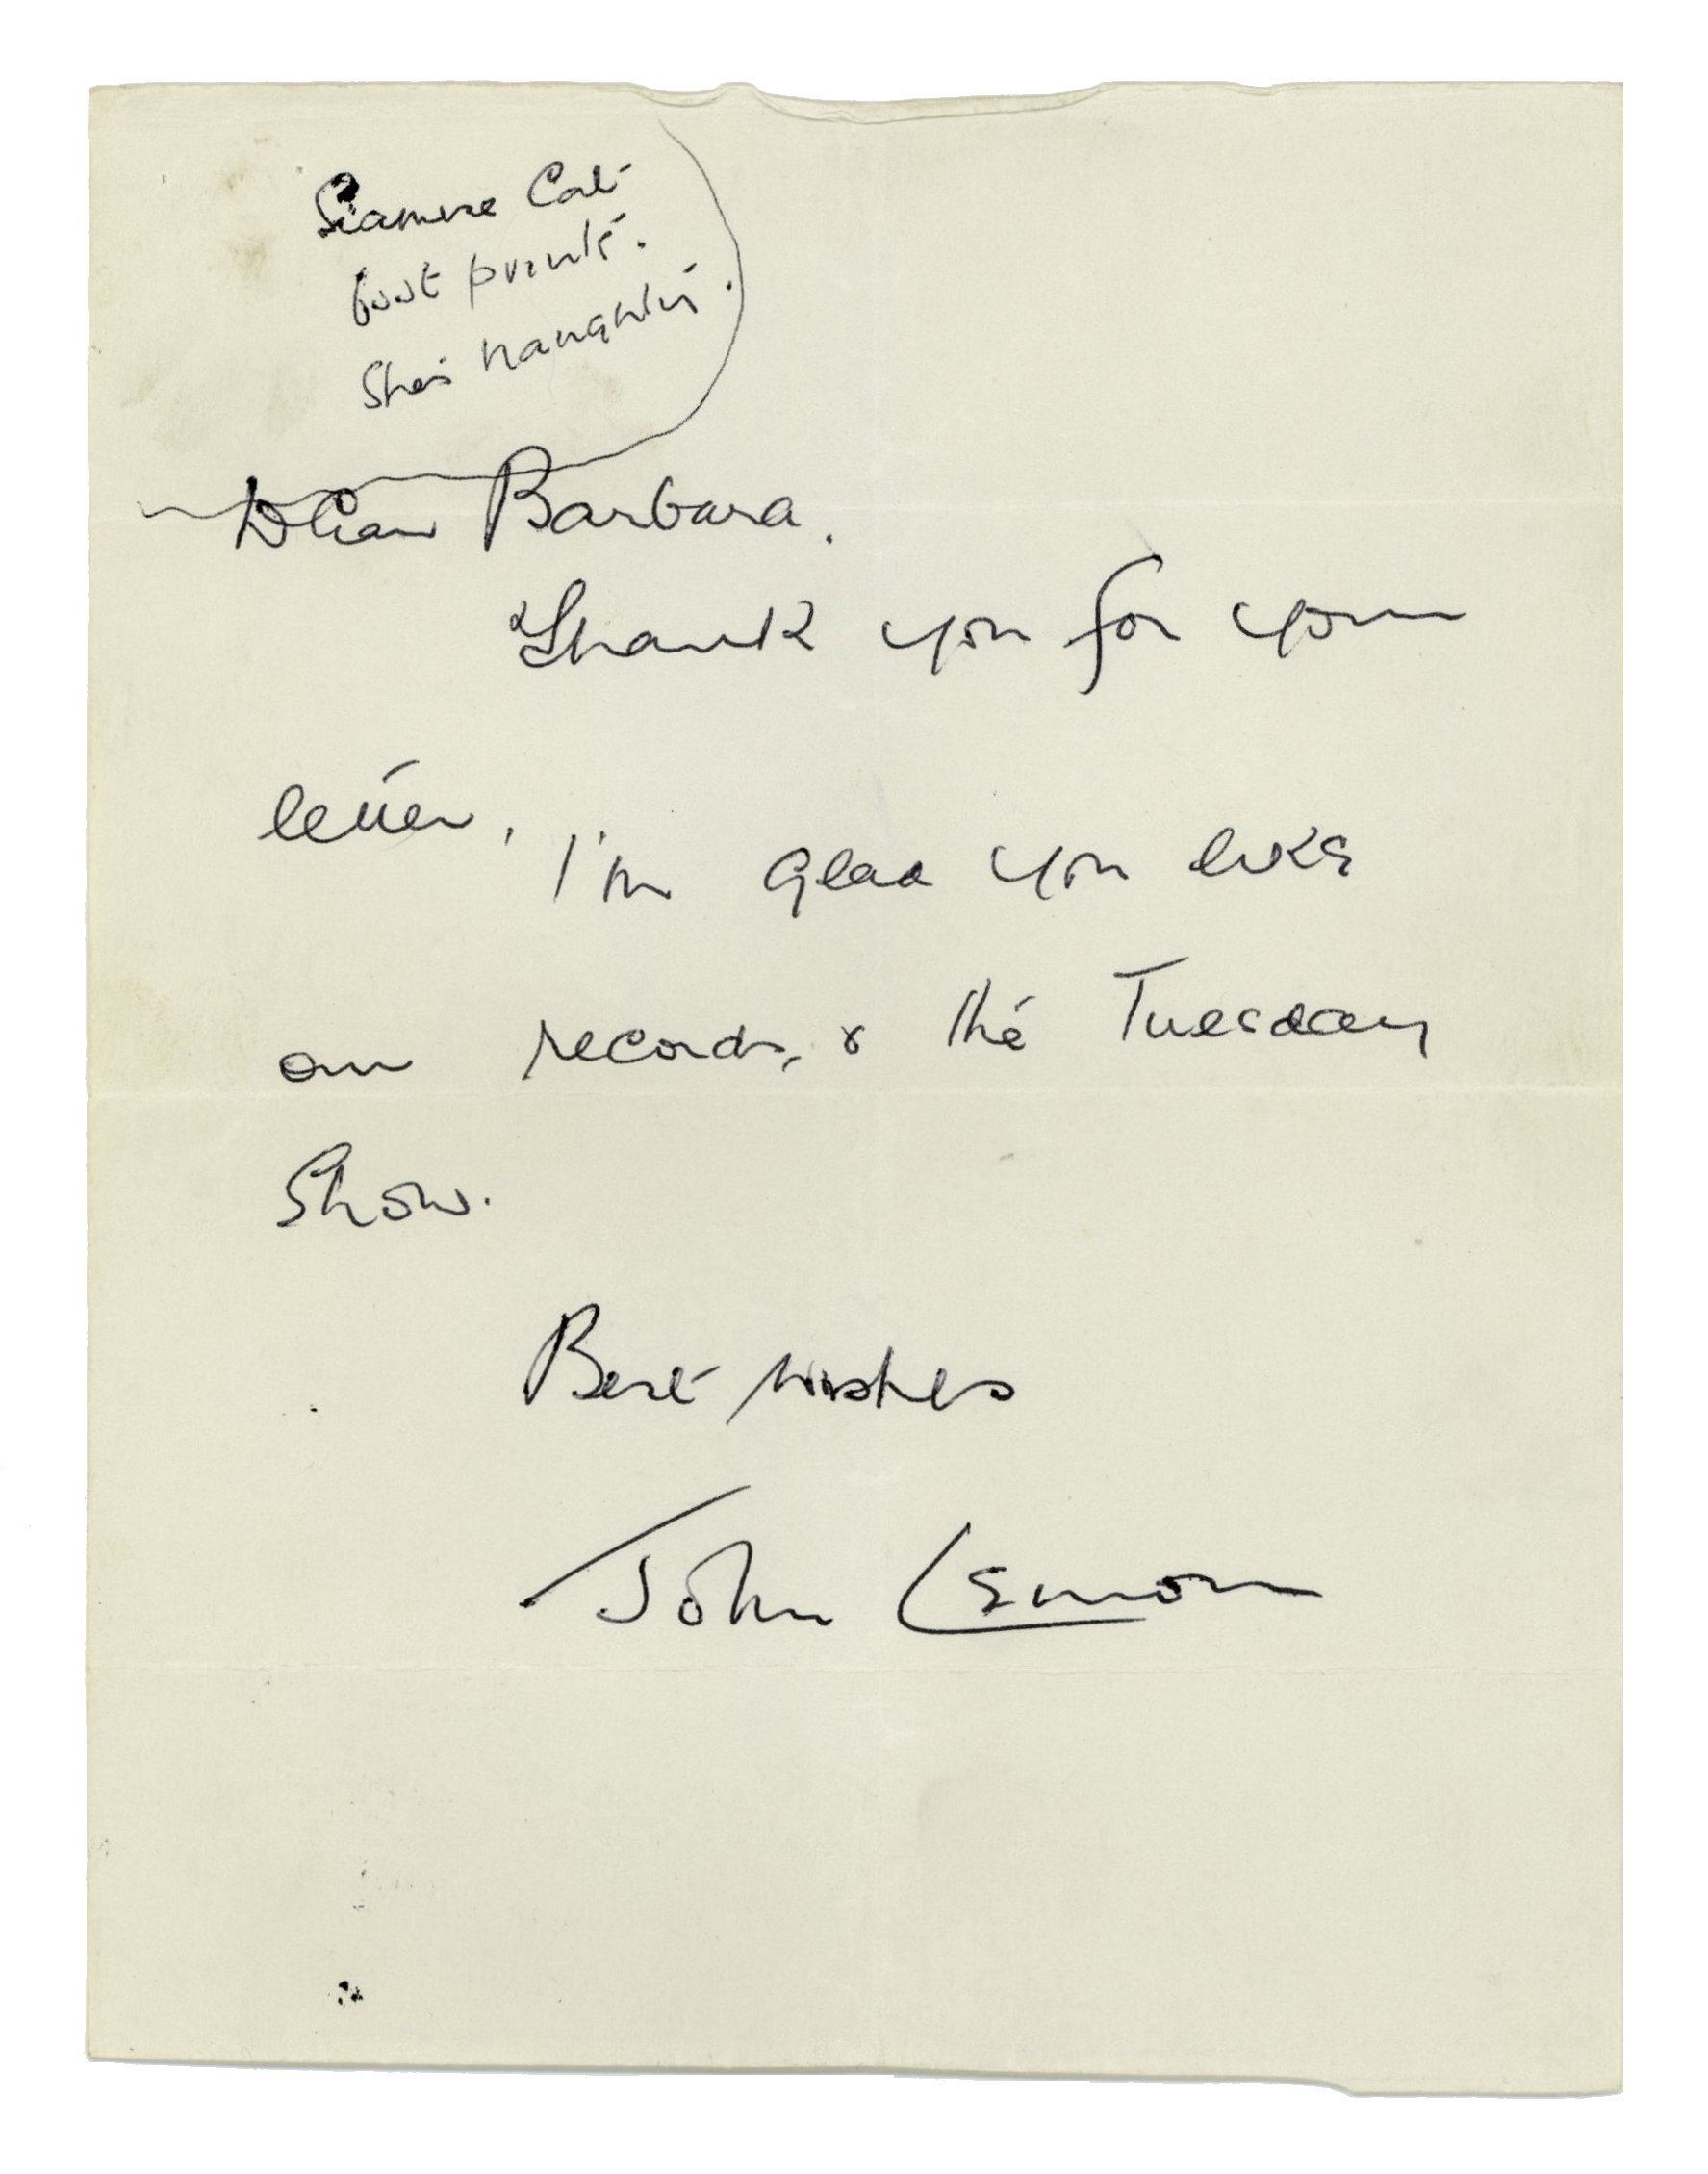 Siamese Cat
foot prints.
She's naughty.
Dear Barbara.
Thank you for your
letter, I'm glad you like
our records, & the Tuesday
Show.
Best wishes
John Lennon